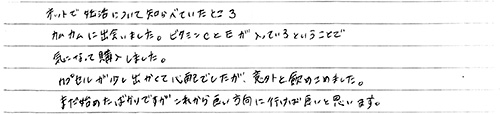 ネットで妊活について知らべていたところ
カムカムに出会いました。ビタミンCとEが入っているということで
気になって購入しました。
カプセルが少し出かくて心配でしたが、意外と飲めこめました。
まだ始めたばかりですがこれから良い方向に行けば良いと思います。